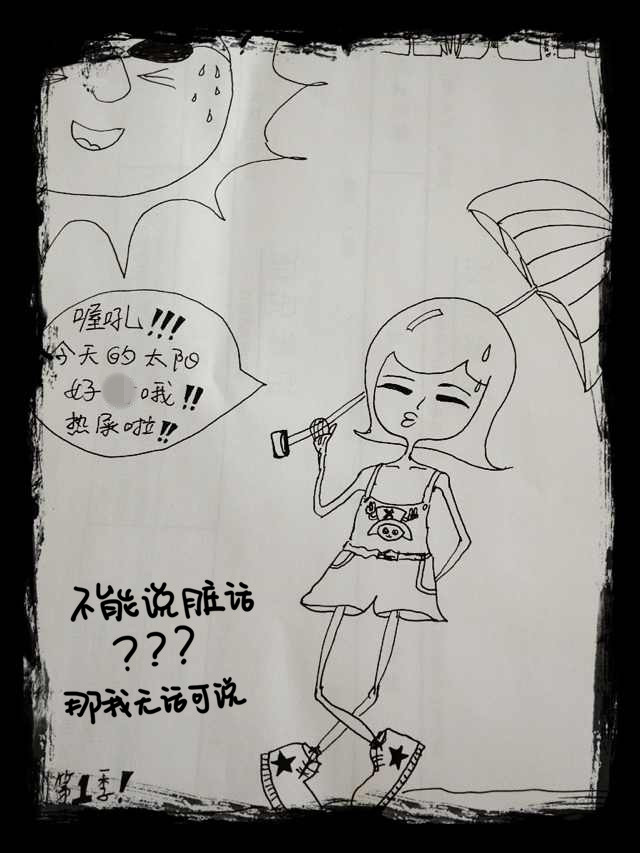 喔吼!!!
今天的太阳
好 哦!!
热尿啦!!
不能说脏话
???
那我无话可说
第1季!